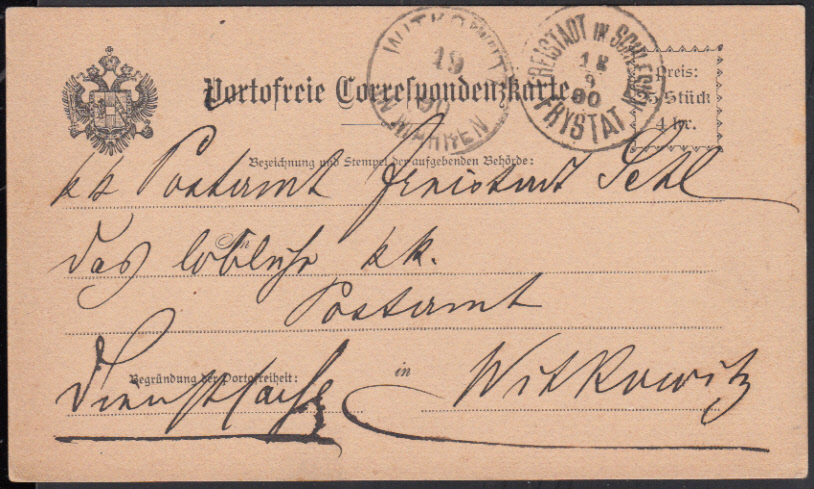 WITKOWITZ
19
90
IN MÄHREN
FREISTADT IN SCHLESIEN
18
9
90
FRYSTAT
Portofreie Correspondenzkarte
Preis:
25 Stück
4 kr.
Bezeichnung und Stempel der aufgebenden Behörde:
kk Postamt Freistadt Schl
An
das löbliche kk.
Postamt
Begründung der Portofreiheit:
Dienstsache
in Witkowitz